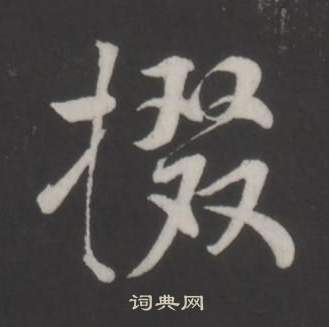 掇
词典网